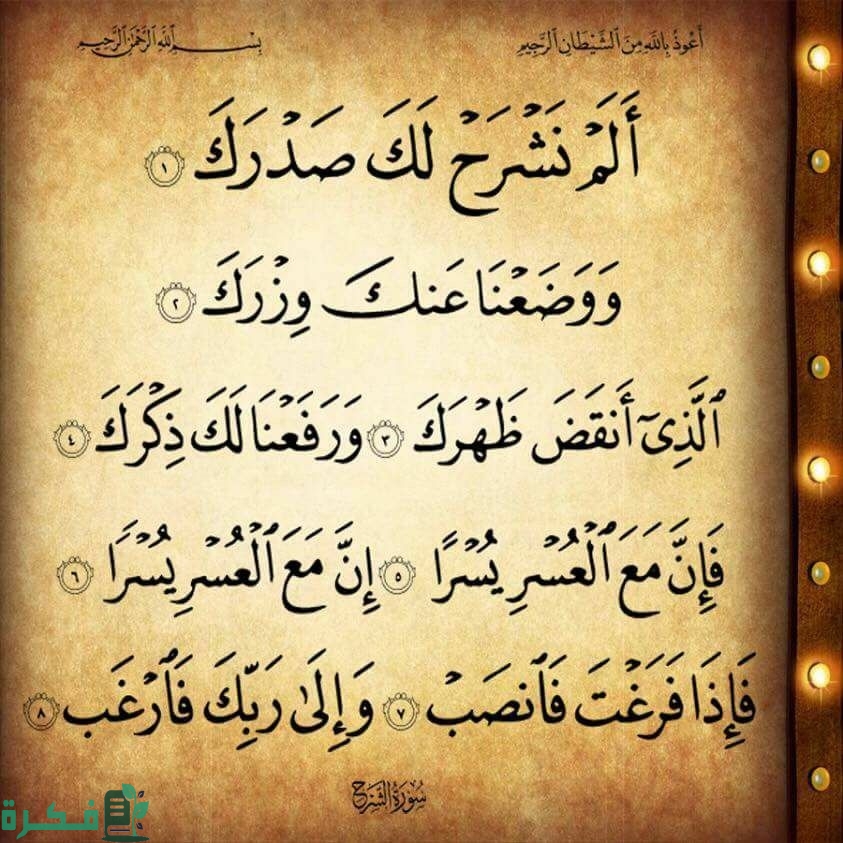 أَعُوذُ بِٱللَّهِ مِنَ ٱلشَّيْطَانِ ٱلرَّجِيمِ بِسْمِ ٱللَّهِ ٱلرَّحْمَٰنِ ٱلرَّحِيمِ
أَلَمْ نَشْرَحْ لَكَ صَدْرَكَ ١
وَوَضَعْنَا عَنكَ وِزْرَكَ ٢
ٱلَّذِىٓ أَنقَضَ ظَهْرَكَ ٣ وَرَفَعْنَا لَكَ ذِكْرَكَ ٤
فَإِنَّ مَعَ ٱلْعُسْرِ يُسْرًا ٥ إِنَّ مَعَ ٱلْعُسْرِ يُسْرًا ٦
فَإِذَا فَرَغْتَ فَٱنصَبْ ٧ وَإِلَىٰ رَبِّكَ فَٱرْغَب ٨
سُورَةُ الشَّرْحِ
فكرة